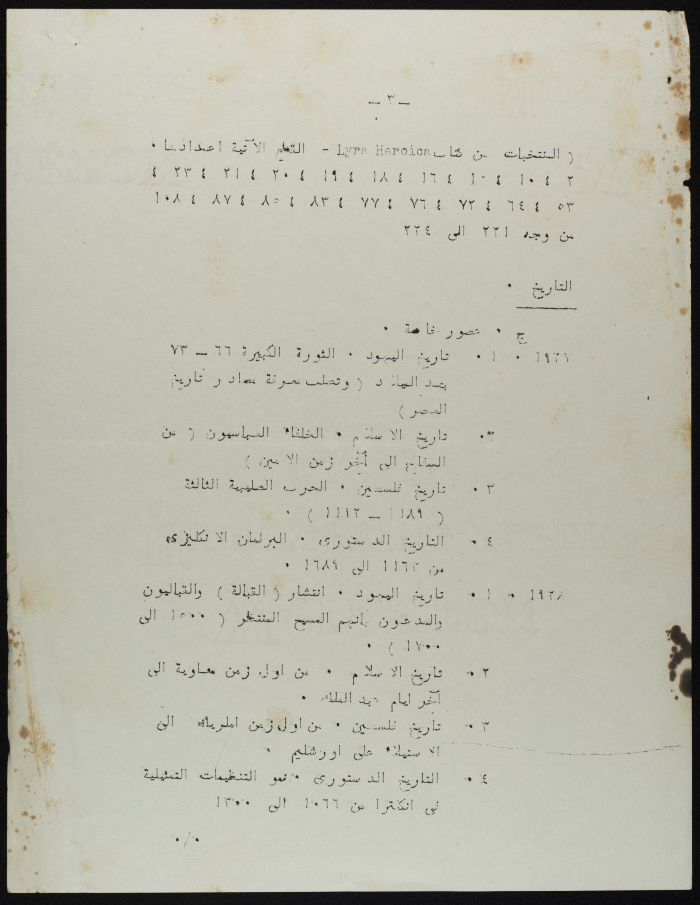 - ٣ -
( المنتخبات من كتاب Lyra Heroica - القطع الآتية اعدادها .
٢ ٤ ١٠ ٤ ١٥ ٤ ١٦ ٤ ١٨ ٤ ١٩ ٤ ٢٠ ٤ ٢١ ٤ ٢٣ ٤
٥٣ ٤ ٦٤ ٤ ٧٢ ٤ ٧٦ ٤ ٧٧ ٤ ٨٣ ٤ ٨٥ ٤ ٨٧ ٤ ١٠٨
من وجه ٢٢١ الى ٢٢٤
التاريخ .
ج . عصور خاصة .
١٩٢٧ . ١ . تاريخ اليهود . الثورة الكبيرة ٦٦ - ٧٣
بعد الميلاد ( وتطلب معرفة مصادر تاريخ
العصر )
٢. تاريخ الاسلام . الخلفاء العباسيون ( من
السفاح الى آخر زمن الامين )
٣ . تاريخ فلسطين . الحرب الصليبية الثالثة
( ١١٨٩ - ١١٩٢ ) .
٤ . التاريخ الدستورى . البرلمان الانكليزى
من الى ١٦٨٩ .
١٩٢٨ . ١ . تاريخ اليهود . انتشار ( القبالة ) والقباليون
والمدعون بانهم المسيح المنتظر ( ١٥٠٠ الى
١٧٠٠ ) .
٢ . تاريخ الاسلام . من اول زمن معاوية الى
آخر ايام عبد الملك .
٣ . تاريخ فلسطين . من اول زمن الى
الاستيلاء على اورشليم .
٤ . التاريخ الدستورى . نمو التنظيمات التمثيلية
فى انكلترا من ١٠٦٦ الى ١٣٠٠
./.